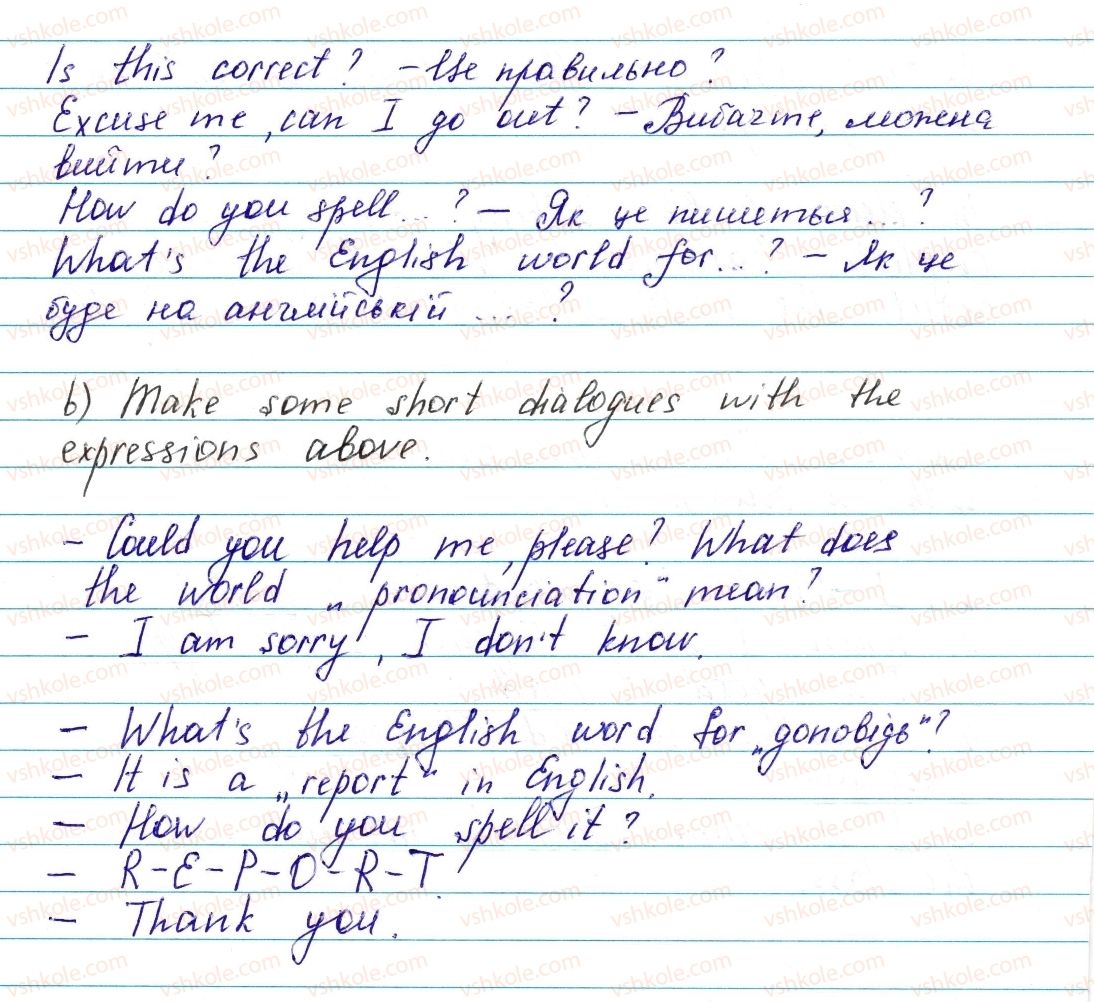 Is this correct? – Це правильно?
Excuse me, can I go out? – Вибачте, можна
вийти?
How do you spell...? – Як це пишеться...?
What's the English world for...? – Як це
буде на англійській ... ?
b) Make some short dialogues with the
expressions above.
– Could you help me, please? What does
the world „pronounciation" mean?
– I am sorry, I don't know.
– What's the English word for „доповідь"?
– It is a „report" in English.
– How do you spell it?
– R-E-P-O-R-T.
– Thank you.